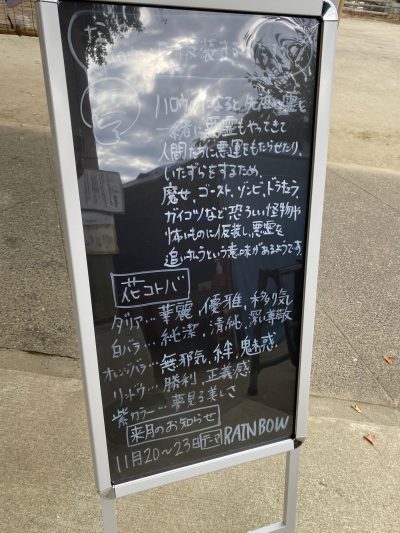 なぜ仮装するの
ハロウィンになると先祖の霊と
一緒に悪霊もやってきて
人間たちに悪運をもたらせたり、
いたずらをするため、
魔女、ゴースト、ゾンビ、ドラキュラ、
ガイコツなど恐ろしい怪物や
怖いものに仮装し、悪霊を
追い払うという意味があるようです
花コトバ
ダリア…華麗、優雅、移り気
白バラ…純潔、清純、深い尊敬
オレンジバラ…無邪気、絆、魅惑
リンドウ…勝利、正義感
紫カラー…夢見る美しさ
来月のお知らせ
11月20〜23日 テーマ RAINBOW